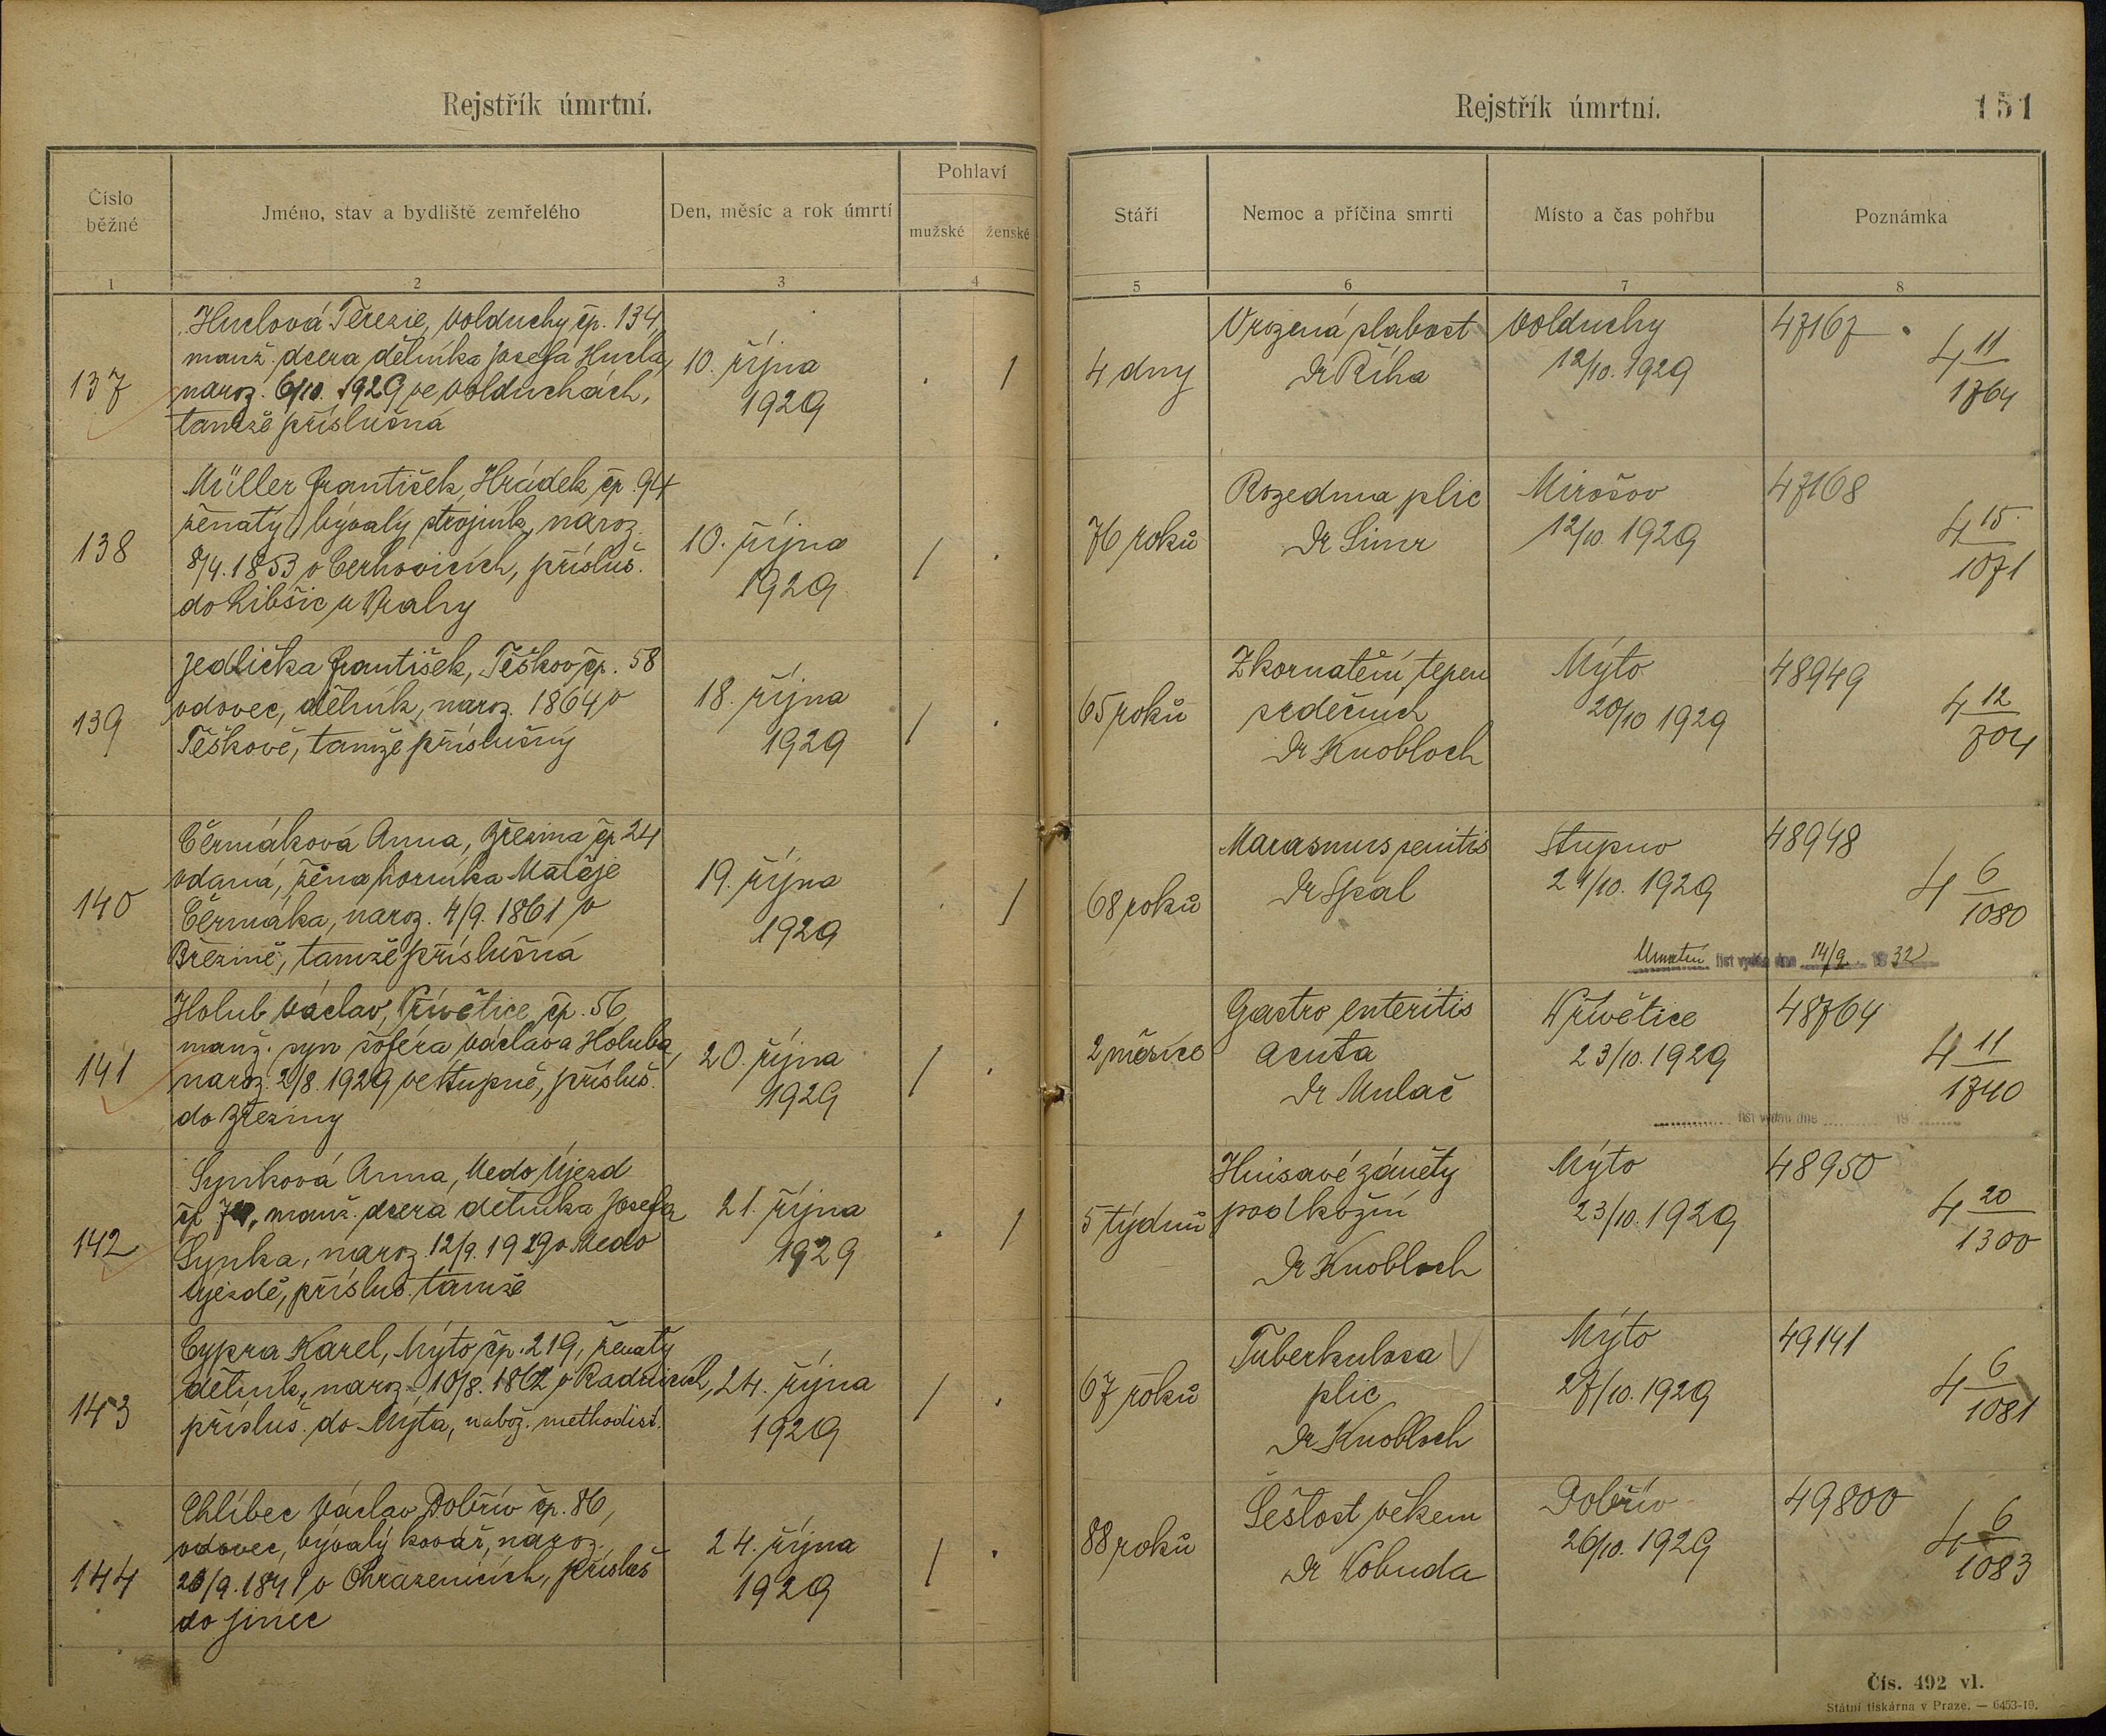 Rejstřík úmrtní.
Číslo běžné
Jméno, stav a bydliště zemřelého
Den, měsíc a rok úmrtí
Pohlaví
mužské ženské
1 2 3 4
137
Huclová Terezie, Volduchy čp. 134,
manž. dcera dělníka Josefa Hucla,
naroz. 6/10. 1929 ve Volduchách,
tamže příslušná
10. října
1929
. 1
138
Müller František, Hrádek čp. 94
ženatý, bývalý strojník, naroz.
8/4. 1853 v Cerhovicích, přísluš.
do Libšic u Prahy
10. října
1929
1 .
139
Jedlička František, Těškov čp. 58
vdovec, dělník, naroz. 1864 v
Těškově, tamže příslušný
18. října
1929
1 .
140
Čermáková Anna, Březina čp 24
vdaná, žena horníka Matěje
Čermáka, naroz. 4/9. 1861 v
Březině, tamže příslušná
19. října
1929
. 1
141
Holub Václav, Křivětice, čp. 56,
manž. syn šoféra Václava Holuba,
naroz. 2/8. 1929 ve Stupně, přísluš.
do Březiny
20. října
1929
1 .
142
Synková Anna, Medo Újezd
čp, manž. dcera dělníka Josefa
Synka, naroz. 12/9. 1929 v Medo
Újezdě, přísluš. tamže
21. října
1929
. 1
143
Cypra Karel, Mýto čp. 219, ženatý
dělník, naroz. 10/8. 1862 v
přísluš. do Mýta, nábož. methodist.
24. října
1929
1 .
144
Chlíbec Václav Dobřív čp. 86,
vdovec, bývalý kovář, naroz.
/9. 1841 v Ohrazenicích, přísluš
do Jinec
24. října
1929
1 .
Rejstřík úmrtní.
151
Stáří
Nemoc a příčina smrti
Místo a čas pohřbu
Poznámka
5 6 7 8
4 dny
Vrozená slabost
Dr Říha
Volduchy
12/10. 1929
47167
4 11/1764
76 roků
Rozedma plic
Dr Simr
Mirošov
12/10. 1929
47168
4 15/1071
65 roků
Zkornatění tepen
srdečních
Dr Knobloch
Mýto
20/10 1929
48949
4 12/704
68 roků
Marasmus senilis
Dr Spal
Stupno
21/10. 1929
48948
4 6/1080
Úmrtní list vydán dne 14/9. 1932
2 měsíce
Gastro enteritis
acuta
Dr Mulač
Křivětice
23/10. 1929
48764
4 11/1740
list vydán dne 19
5 týdnů
Hnisavé záněty
podkožní
Dr Knobloch
Mýto
23/10. 1929
48950
4 20/1300
67 roků
Tuberkulosa
plic
Dr Knobloch
Mýto
27/10. 1929
49141
4 6/1081
88 roků
Sešlost věkem
Dr Kobuda
Dobřív
26/10. 1929
49800
4 6/1083
Čís. 492 vl.
Státní tiskárna v Praze. — 6453-19.